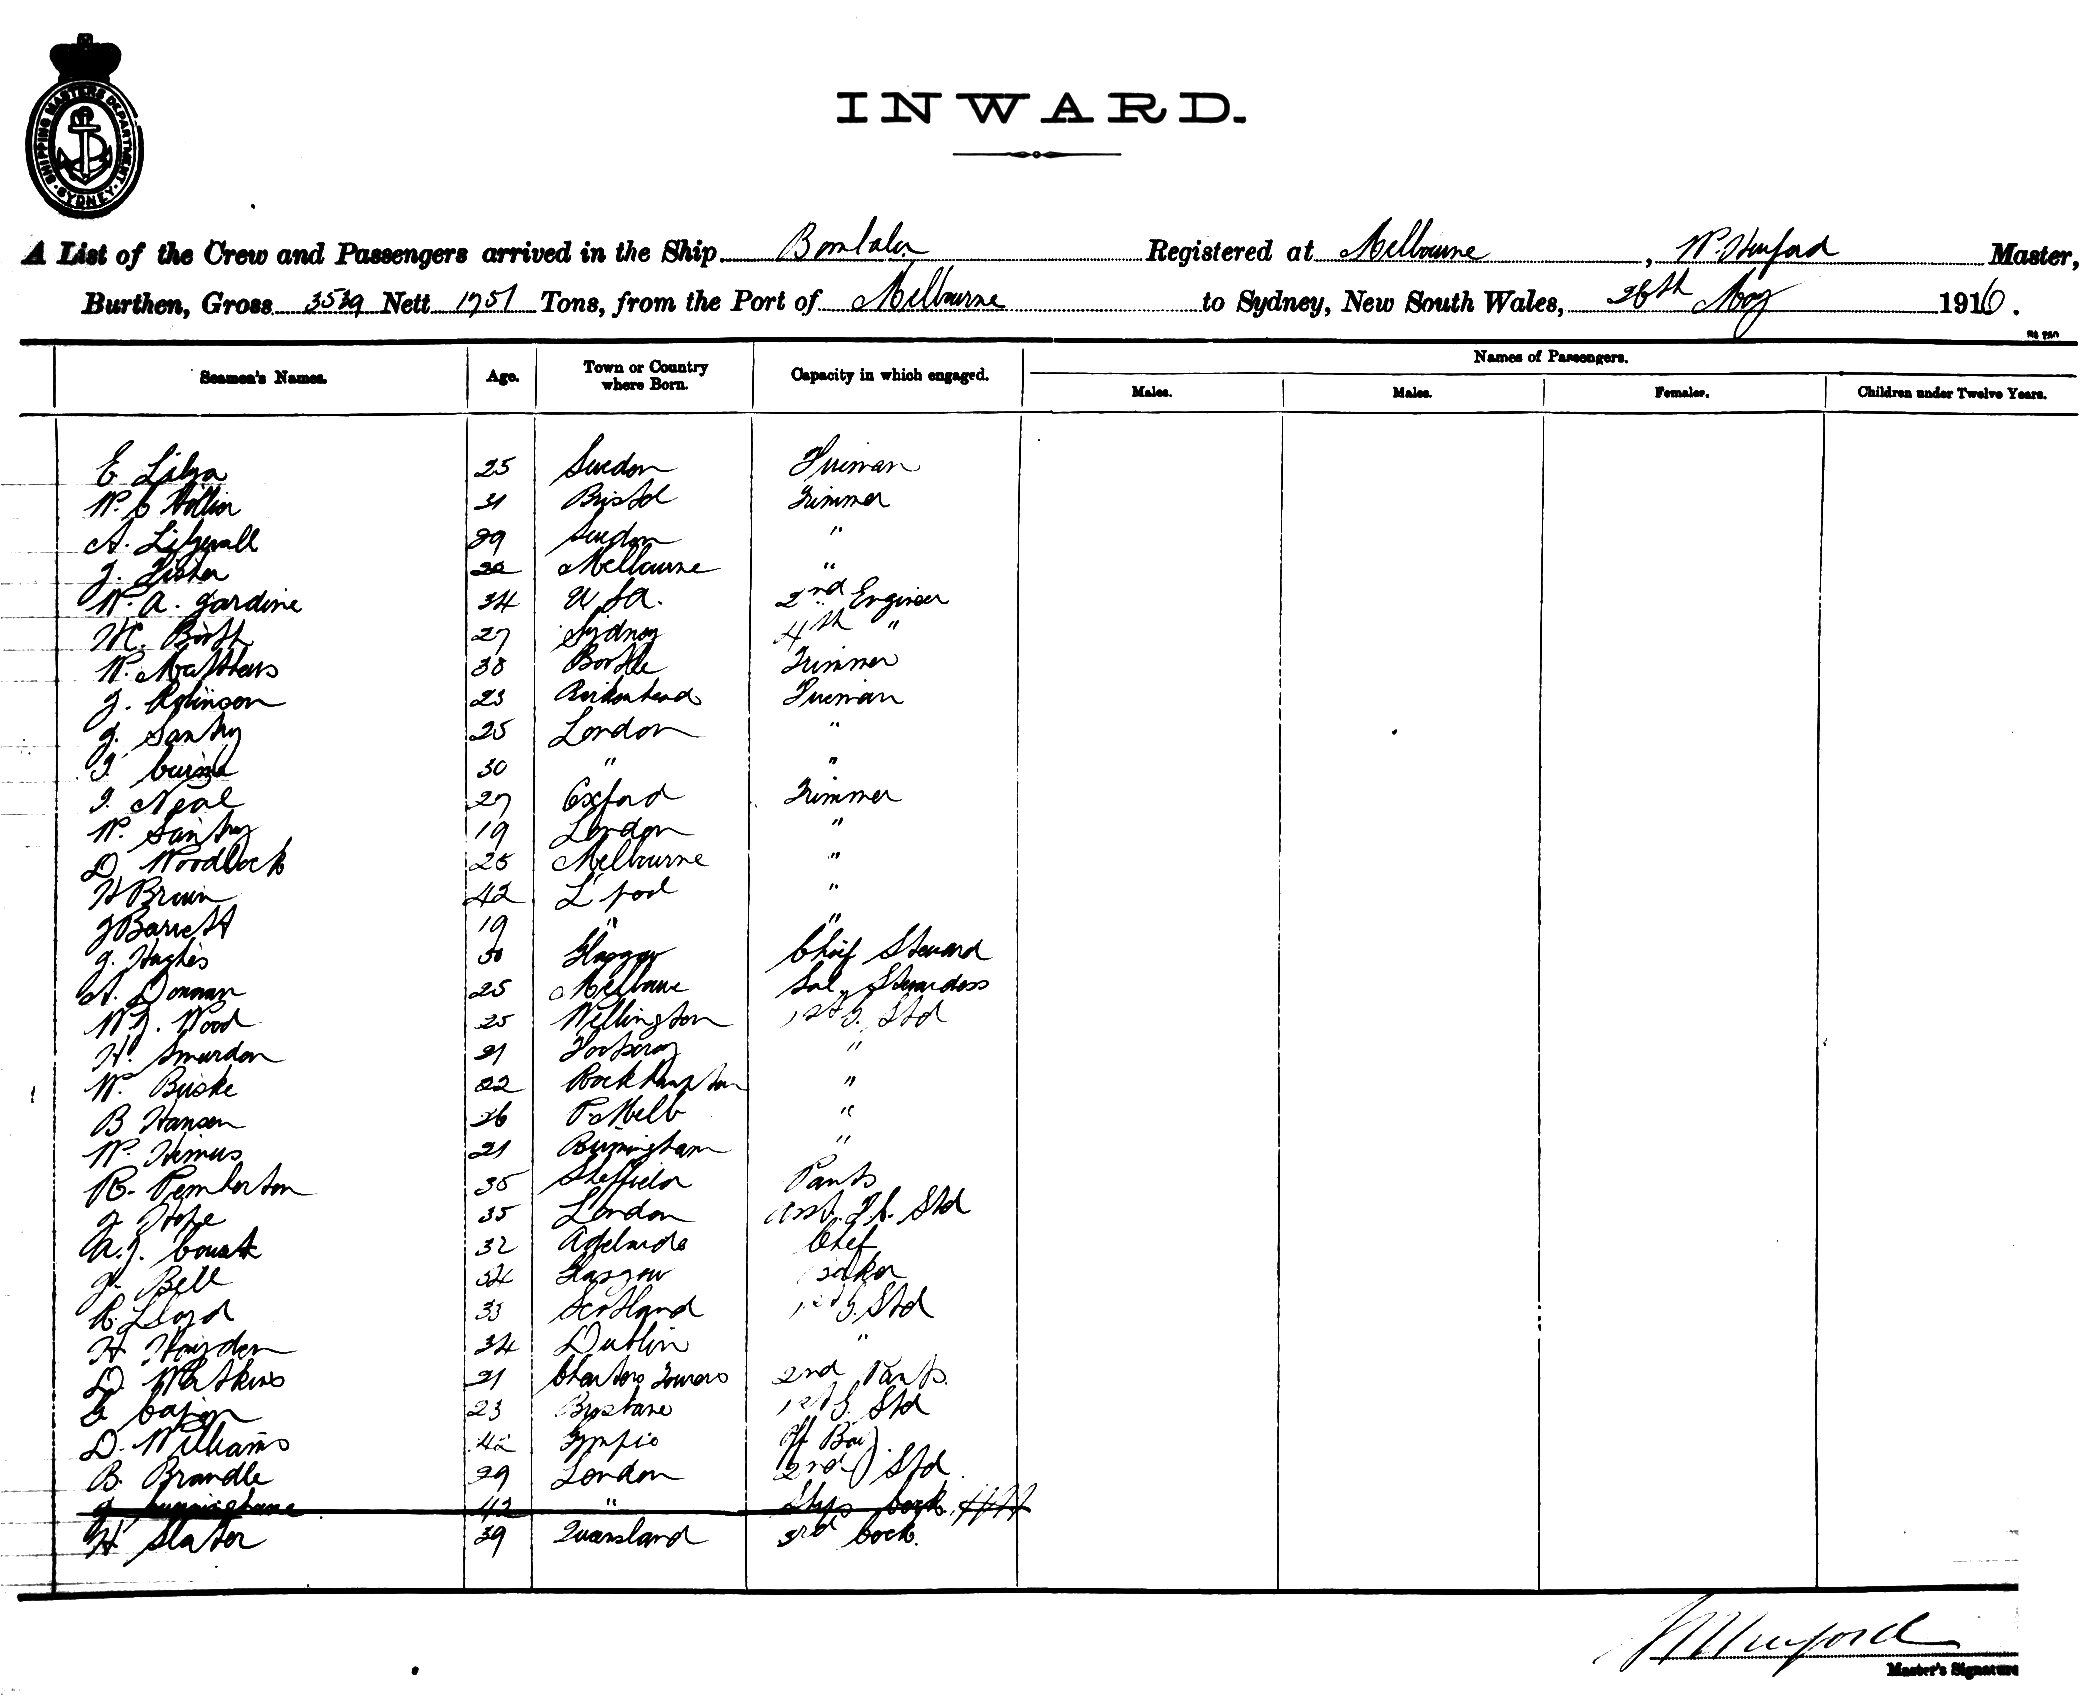 SHIPPING MASTERS DEPARTMENT · SYDNEY ·
INWARD.
A List of the Crew and Passengers arrived in the Ship Bombala Registered at Melbourne, W. Hurford Master,
Burthen, Gross 3539 Nett 1751 Tons, from the Port of Melbourne to Sydney, New South Wales, 26th May 1916.
Seamen's Names. Age. Town or Country where Born. Capacity in which engaged. Names of Passengers.
Males. Males. Females. Children under Twelve Years.
E 25 Sweden Fireman
W. C 31 Bristol Trimmer
A. 29 Sweden "
J. Fisher 22 Melbourne "
W. A. Jardine 34 U S A. 2nd Engineer
M. Booth 27 Sydney 4th "
W. Matthews 38 Bootle Trimmer
J. Robinson 23 Birkenhead Fireman
J. Santry 25 London "
30 " "
J. Neal 27 Oxford Trimmer
W. Santry 19 London "
D. Woodlock 25 Melbourne "
H Bruin 42 L'pool "
J Barrett 19 " "
J. Hughes 31 Glasgow Chief Steward
A. Donovan 25 Melbourne Sal. Stewardess
W. J. Wood 25 Wellington 1st S. Std
H. Smerdon 21 Footscray "
W. Buske 22 Rockhampton "
B Hansen 26 P. Melb "
W. Himus 21 Birmingham "
R. Pemberton 35 Sheffield Pants
J Hope 35 London Asst. Std
A. J. 32 Adelaide Chef
J. Bell 34 Glasgow Baker
R. Lloyd 33 Scotland 1st S. Std
H Hayden 34 Dublin "
D. Watkins 21 Charters Towers 2nd Pants.
23 Brisbane 1st S. Std
D. Williams 42 Gympie
B. Brandle 29 London 2nd Std.
J Cunninghame 42 " Ships Cook
H Slater 39 Queensland 3rd Cook.
W Hurford
Master's Signature